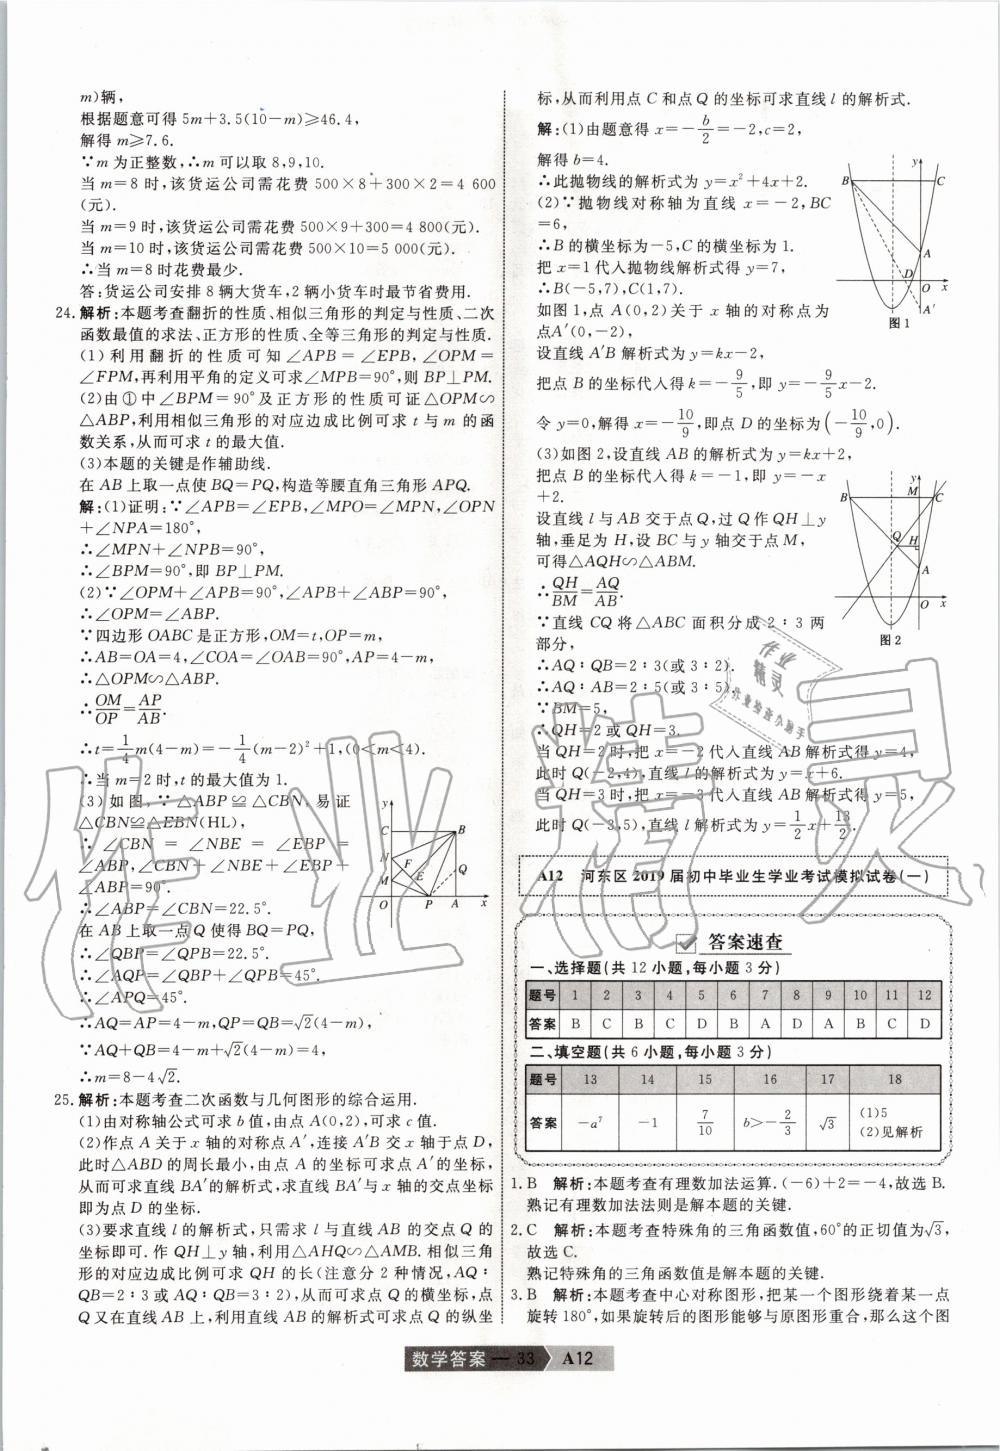 m)辆,
根据题意可得5m+3.5(10-m)≥46.4,
解得m≥7.6.
∵m为正整数,∴m可以取8,9,10.
当m=8时,该货运公司需花费500×8+300×2=4 600
(元).
当m=9时,该货运公司需花费500×9+300=4 800(元).
当m=10时,该货运公司需花费500×10=5 000(元).
∴当m=8时花费最少.
答:货运公司安排8辆大货车,2辆小货车时最节省费用.
24.解析:本题考查翻折的性质、相似三角形的判定与性质、二次
函数最值的求法、正方形的性质、全等三角形的判定与性质.
(1)利用翻折的性质可知∠APB=∠EPB,∠OPM=
∠FPM,再利用平角的定义可求∠MPB=90°,则BP⊥PM.
(2)由①中∠BPM=90°及正方形的性质可证△OPM∽
△ABP,利用相似三角形的对应边成比例可求t与m的函
数关系,从而可求t的最大值.
(3)本题的关键是作辅助线.
在AB上取一点使BQ=PQ,构造等腰直角三角形APQ.
解:(1)证明:∵∠APB=∠EPB,∠MPO=∠MPN,∠OPN
+∠NPA=180°,
∴∠MPN+∠NPB=90°,
∴∠BPM=90°,即BP⊥PM.
(2)∵∠OPM+∠APB=90°,∠APB+∠ABP=90°,
∴∠OPM=∠ABP.
∵四边形OABC是正方形,OM=t,OP=m,
∴AB=OA=4,∠COA=∠OAB=90°,AP=4-m,
∴△OPM∽△ABP.
∴OM/OP=AP/AB.
∴t=1/4m(4-m)=-1/4(m-2)²+1,(0<m<4).
∴当m=2时,t的最大值为1.
(3)如图,∵△ABP≌△CBN,易证
△CBN≌△EBN(HL),
∴∠CBN=∠NBE=∠EBP=
∠ABP,∠CBN+∠NBE+∠EBP+
∠ABP=90°.
∴∠ABP=∠CBN=22.5°.
在AB上取一点Q使得BQ=PQ,
∴∠QBP=∠QPB=22.5°.
∴∠AQP=∠QBP+∠QPB=45°.
∴∠APQ=45°.
∴AQ=AP=4-m,QP=QB=√2(4-m),
∵AQ+QB=4-m+√2(4-m)=4,
∴m=8-4√2.
y
C
B
N
F
E
Q
M
O
P
A
x
25.解析:本题考查二次函数与几何图形的综合运用.
(1)由对称轴公式可求b值,由点A(0,2),可求c值.
(2)作点A关于x轴的对称点A′,连接A′B交x轴于点D,
此时△ABD的周长最小,由点A的坐标可求点A′的坐标,
从而可求直线BA′的解析式,求直线BA′与x轴的交点坐标
即为点D的坐标.
(3)要求直线l的解析式,只需求l与直线AB的交点Q的
坐标即可.作QH⊥y轴,利用△AHQ∽△AMB.相似三角
形的对应边成比例可求QH的长(注意分2种情况,AQ:
QB=2:3或AQ:QB=3:2),从而可求点Q的横坐标,点
Q又在直线AB上,利用AB的解析式可求点Q的纵坐
标,从而利用点C和点Q的坐标可求直线l的解析式.
解:(1)由题意得x=-b/2=-2,c=2,
解得b=4.
∴此抛物线的解析式为y=x²+4x+2.
(2)∵抛物线对称轴为直线x=-2,BC
=6,
∴B的横坐标为-5,C的横坐标为1.
把x=1代入抛物线解析式得y=7,
∴B(-5,7),C(1,7).
如图1,点A(0,2)关于x轴的对称点为
点A′(0,-2),
设直线A′B解析式为y=kx-2,
把点B的坐标代入得k=-9/5,即y=-9/5x-2.
令y=0,解得x=-10/9,即点D的坐标为(-10/9,0).
y
B
C
A
D
O
x
A′
图1
(3)如图2,设直线AB的解析式为y=kx+2,
把点B的坐标代入得k=-1,即y=-x
+2.
设直线l与AB交于点Q,过Q作QH⊥y
轴,垂足为H,设BC与y轴交于点M,
可得△AQH∽△ABM.
∴QH/BM=AQ/AB.
∵直线CQ将△ABC面积分成2:3两
部分,
∴AQ:QB=2:3(或3:2).
∴AQ:AB=2:5(或3:5).
∵BM=5,
∴QH=2或QH=3.
当QH=2时,把x=-2代入直线AB解析式得y=4,
此时Q(-2,4),直线l的解析式为y=x+6.
当QH=3时,把x=-3代入直线AB解析式得y=5,
此时Q(-3,5),直线l解析式为y=1/2x+13/2.
y
M
B
C
Q
H
A
O
x
图2
作业
精灵
作业检查小助手
作业精灵
A12 河东区2019届初中毕业生学业考试模拟试卷(一)
答案速查
一、选择题(共12小题,每小题3分)
题号 1 2 3 4 5 6 7 8 9 10 11 12
答案 B C B C D B A D A B C D
二、填空题(共6小题,每小题3分)
题号 13 14 15 16 17 18
答案 -a⁷ -1 7/10 b>-2/3 √3 (1)5
(2)见解析
1.B 解析:本题考查有理数加法运算.(-6)+2=-4,故选B.
熟记有理数加法法则是解本题的关键.
2.C 解析:本题考查特殊角的三角函数值,60°的正切值为√3,
故选C.
熟记特殊角的三角函数值是解本题的关键.
3.B 解析:本题考查中心对称图形,把某一个图形绕着某一点
旋转180°,如果旋转后的图形能够与原图形重合,那么这个图
数学答案 — 33 A12